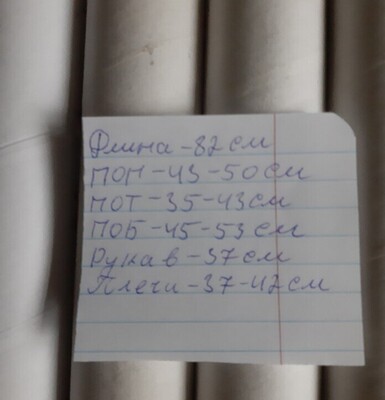 Длина - 82 см
ПОП - 43 - 50 см
ПОТ - 35 - 43 см
ПОБ - 45 - 53 см
Рукав - 37 см
Плечи - 37 - 42 см